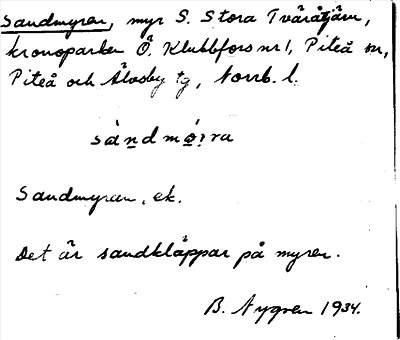 Sandmyren, myr S. Stora Tvåråtjärn,
kronoparken Ö. Klubbfors nr 1, Piteå sn,
Piteå och Älvsby tg, Norrb. l.
Sandmyran, ek.
Det är sandkläppar på myren.
B. Nygren 1934.